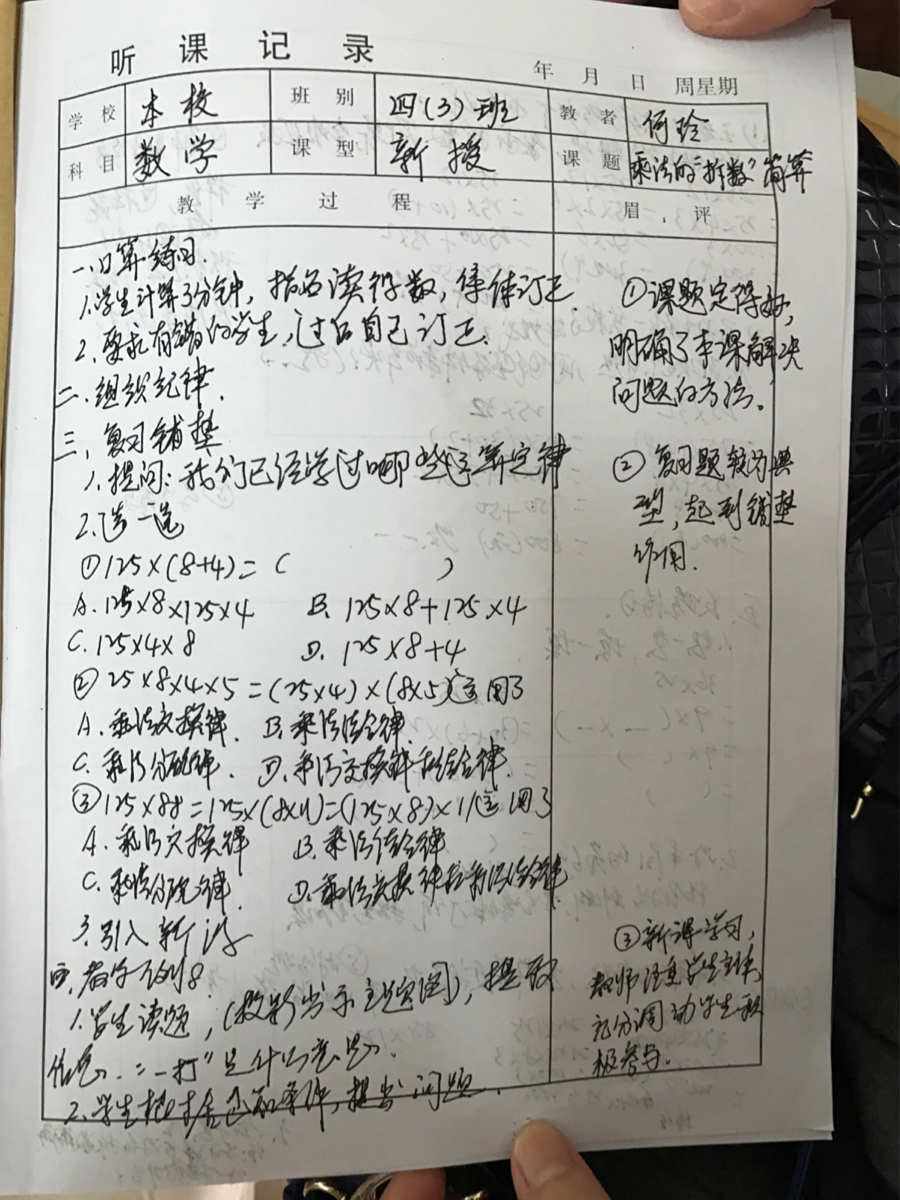 听课记录
年 月 日 周星期
学校 本校 班别 四(3)班 教者 何玲
科目 数学 课型 新授 课题 乘法的“拆数”简算
教学过程 眉评
一、口算练习.
1.学生计算3分钟, 指名读得数, 集体订正.
2.要求有错的学生, 过后自己订正.
二.组织纪律.
三、复习铺垫
1.提问: 我们已经学过哪些运算定律
2.选一选
①125×(8+4)=( )
A.125×8×125×4 B. 125×8+125×4
C.125×4×8 D. 125×8+4
②25×8×4×5=(25×4)×(8×5)运用了
A.乘法交换律. B.乘法结合律.
C.乘法分配律. D.乘法交换律和结合律.
③125×88=125×(8×11)=(125×8)×11运用了
A.乘法交换律 B.乘法结合律
C.乘法分配律 D.乘法交换律和乘法结合律
3.引入新课
四.教学例8
1.学生读题,(教师出示主题图), 提取
信息.“一打”是什么意思.
2.学生 条件, 提出问题.
①课题定得好,
明确了本课解决
问题的方法。
②复习题较为典
型, 起到铺垫
作用.
③新课学习,
教师注重学生主体,
充分调动学生积
极参与。